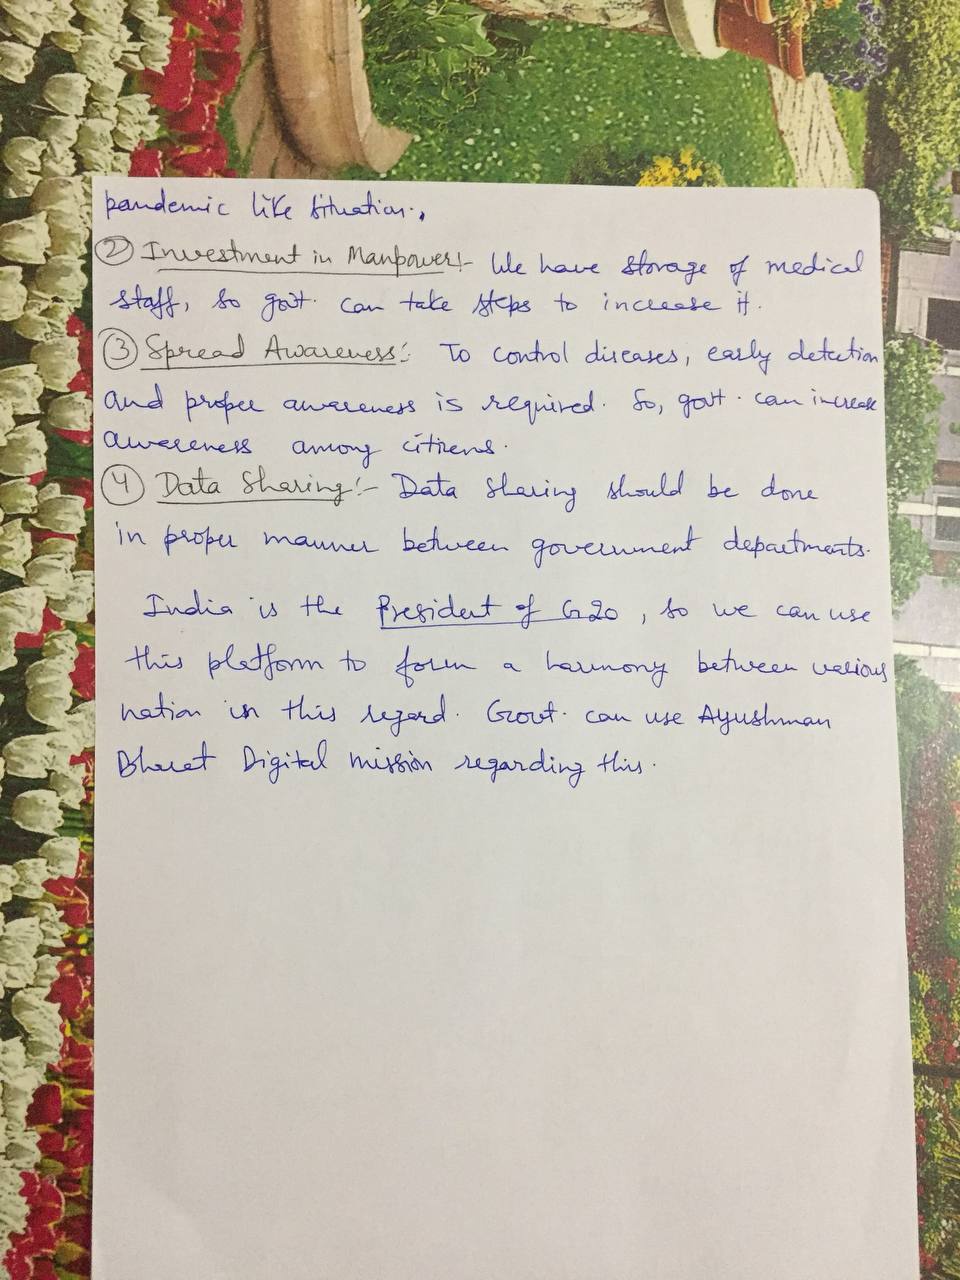 pandemic like situation.
② Investment in Manpower:- We have storage of medical
staff, so govt. can take steps to increase it.
③ Spread Awareness: To control diseases, early detection
and proper awareness is required. So, govt. can increase
awareness among citizens.
④ Data Sharing:- Data sharing should be done
in proper manner between government departments.
India is the President of G20, so we can use
this platform to form a harmony between various
nation in this regard. Govt. can use Ayushman
Bharat Digital mission regarding this.